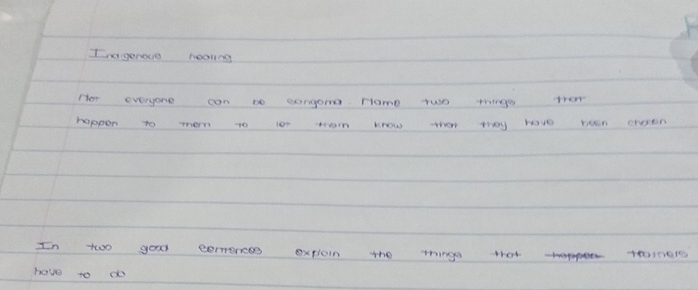 Indigenous healing
Not everyone can be sangoma. Name two things that
happen to them to let them know that they have been chosen
In two good sentences explain the things that happen trainers
have to do